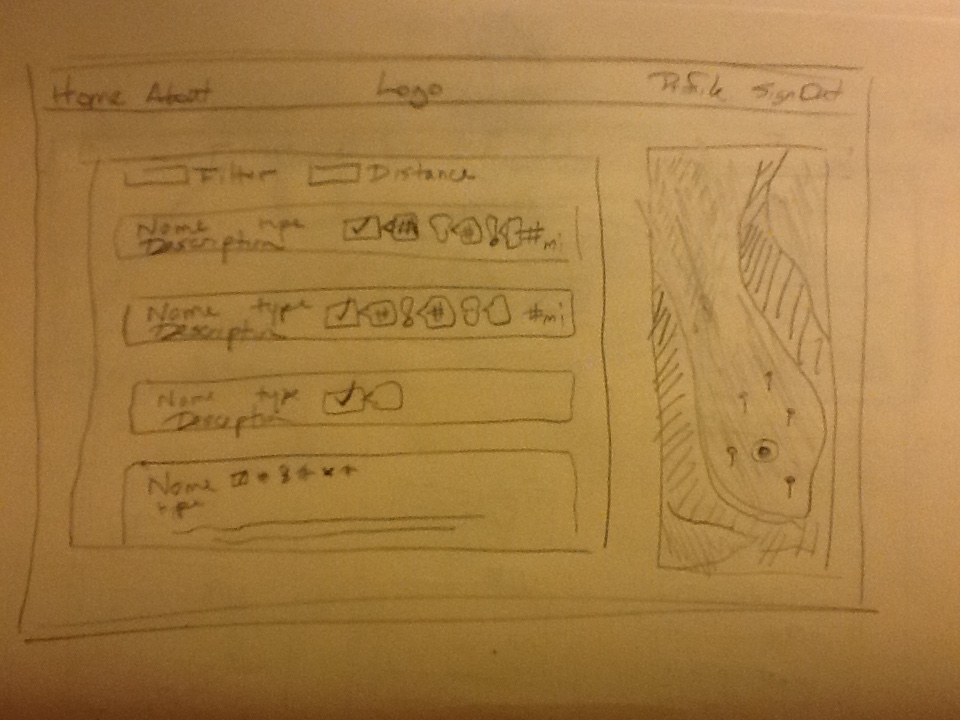 Home About Logo Profile Sign Out
Filter Distance
Name type # # #mi
Description
Name type # # #mi
Description
Name type
Description
Name
type